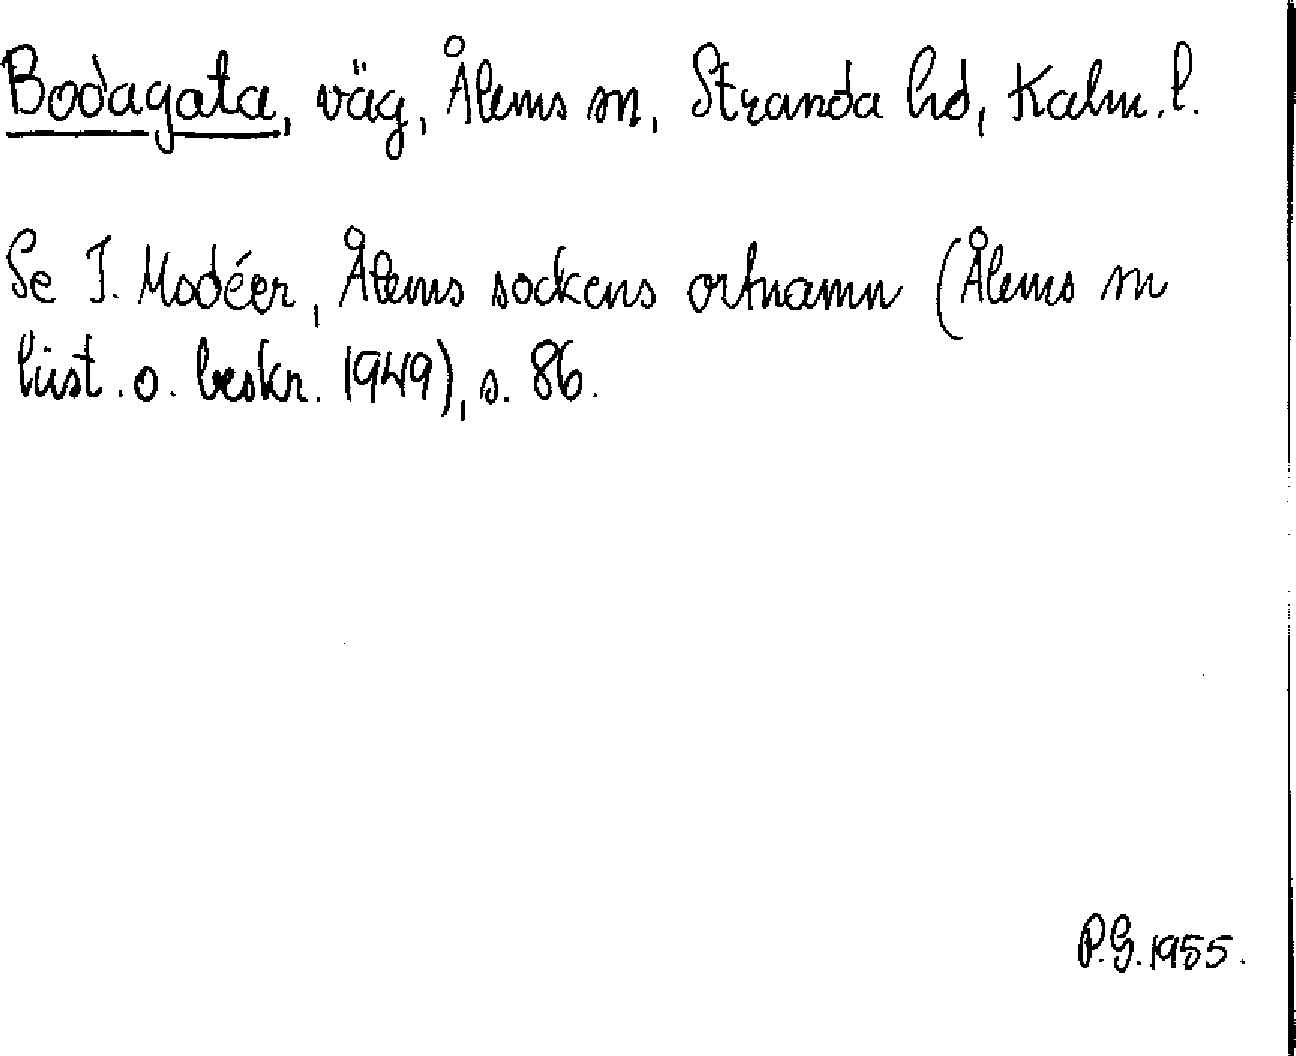 Bodagata, väg, Ålems sn, Stranda hd, Kalm. l.
Se I. Modéer, Ålems sockens ortnamn (Ålems sn
hist. o. beskr. 1949), s. 86.
P.G. 1955.